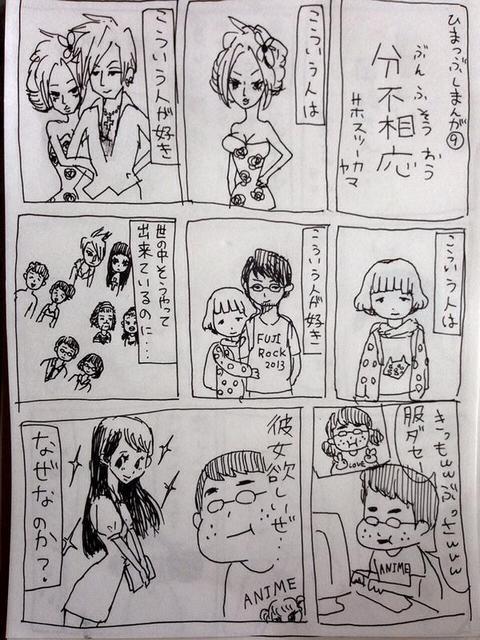 ひまつぶしまんが⑨
ぶんふそうおう
分不相応
サホスツーカヤマ
こういう人は
こういう人が好き
こういう人は
こういう人が好き
FUJI
ROCK
2013
世の中そうやって
出来ているのに…
きっもwwぶっさwww
服ダセー
LOVE
ANIME
彼女欲しいぜ…
ANIME
なぜなのか?